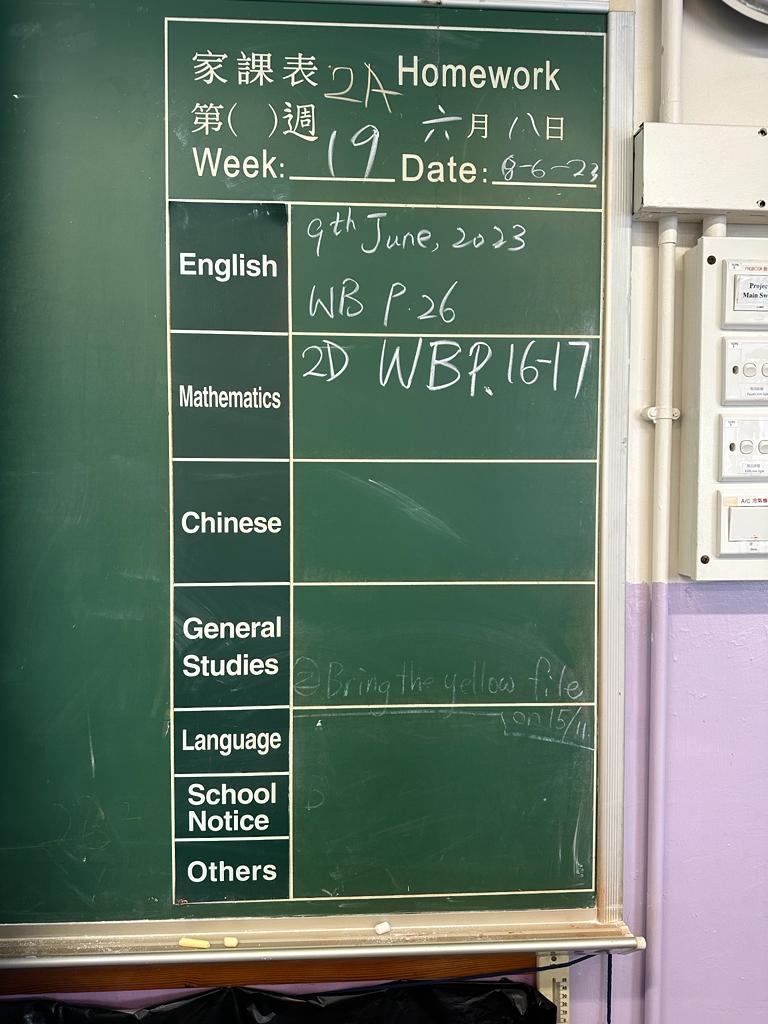 家課表 2A Homework
第( )週 六月八日
Week: 19 Date: 8-6-23
English
9th June, 2023
WB P.26
Mathematics
2D WBP. 16-17
Chinese
General
Studies
② Bring the yellow file
on 15/11
Language
School
Notice
Others
Projec
Main Sw
A/C 冷氣機